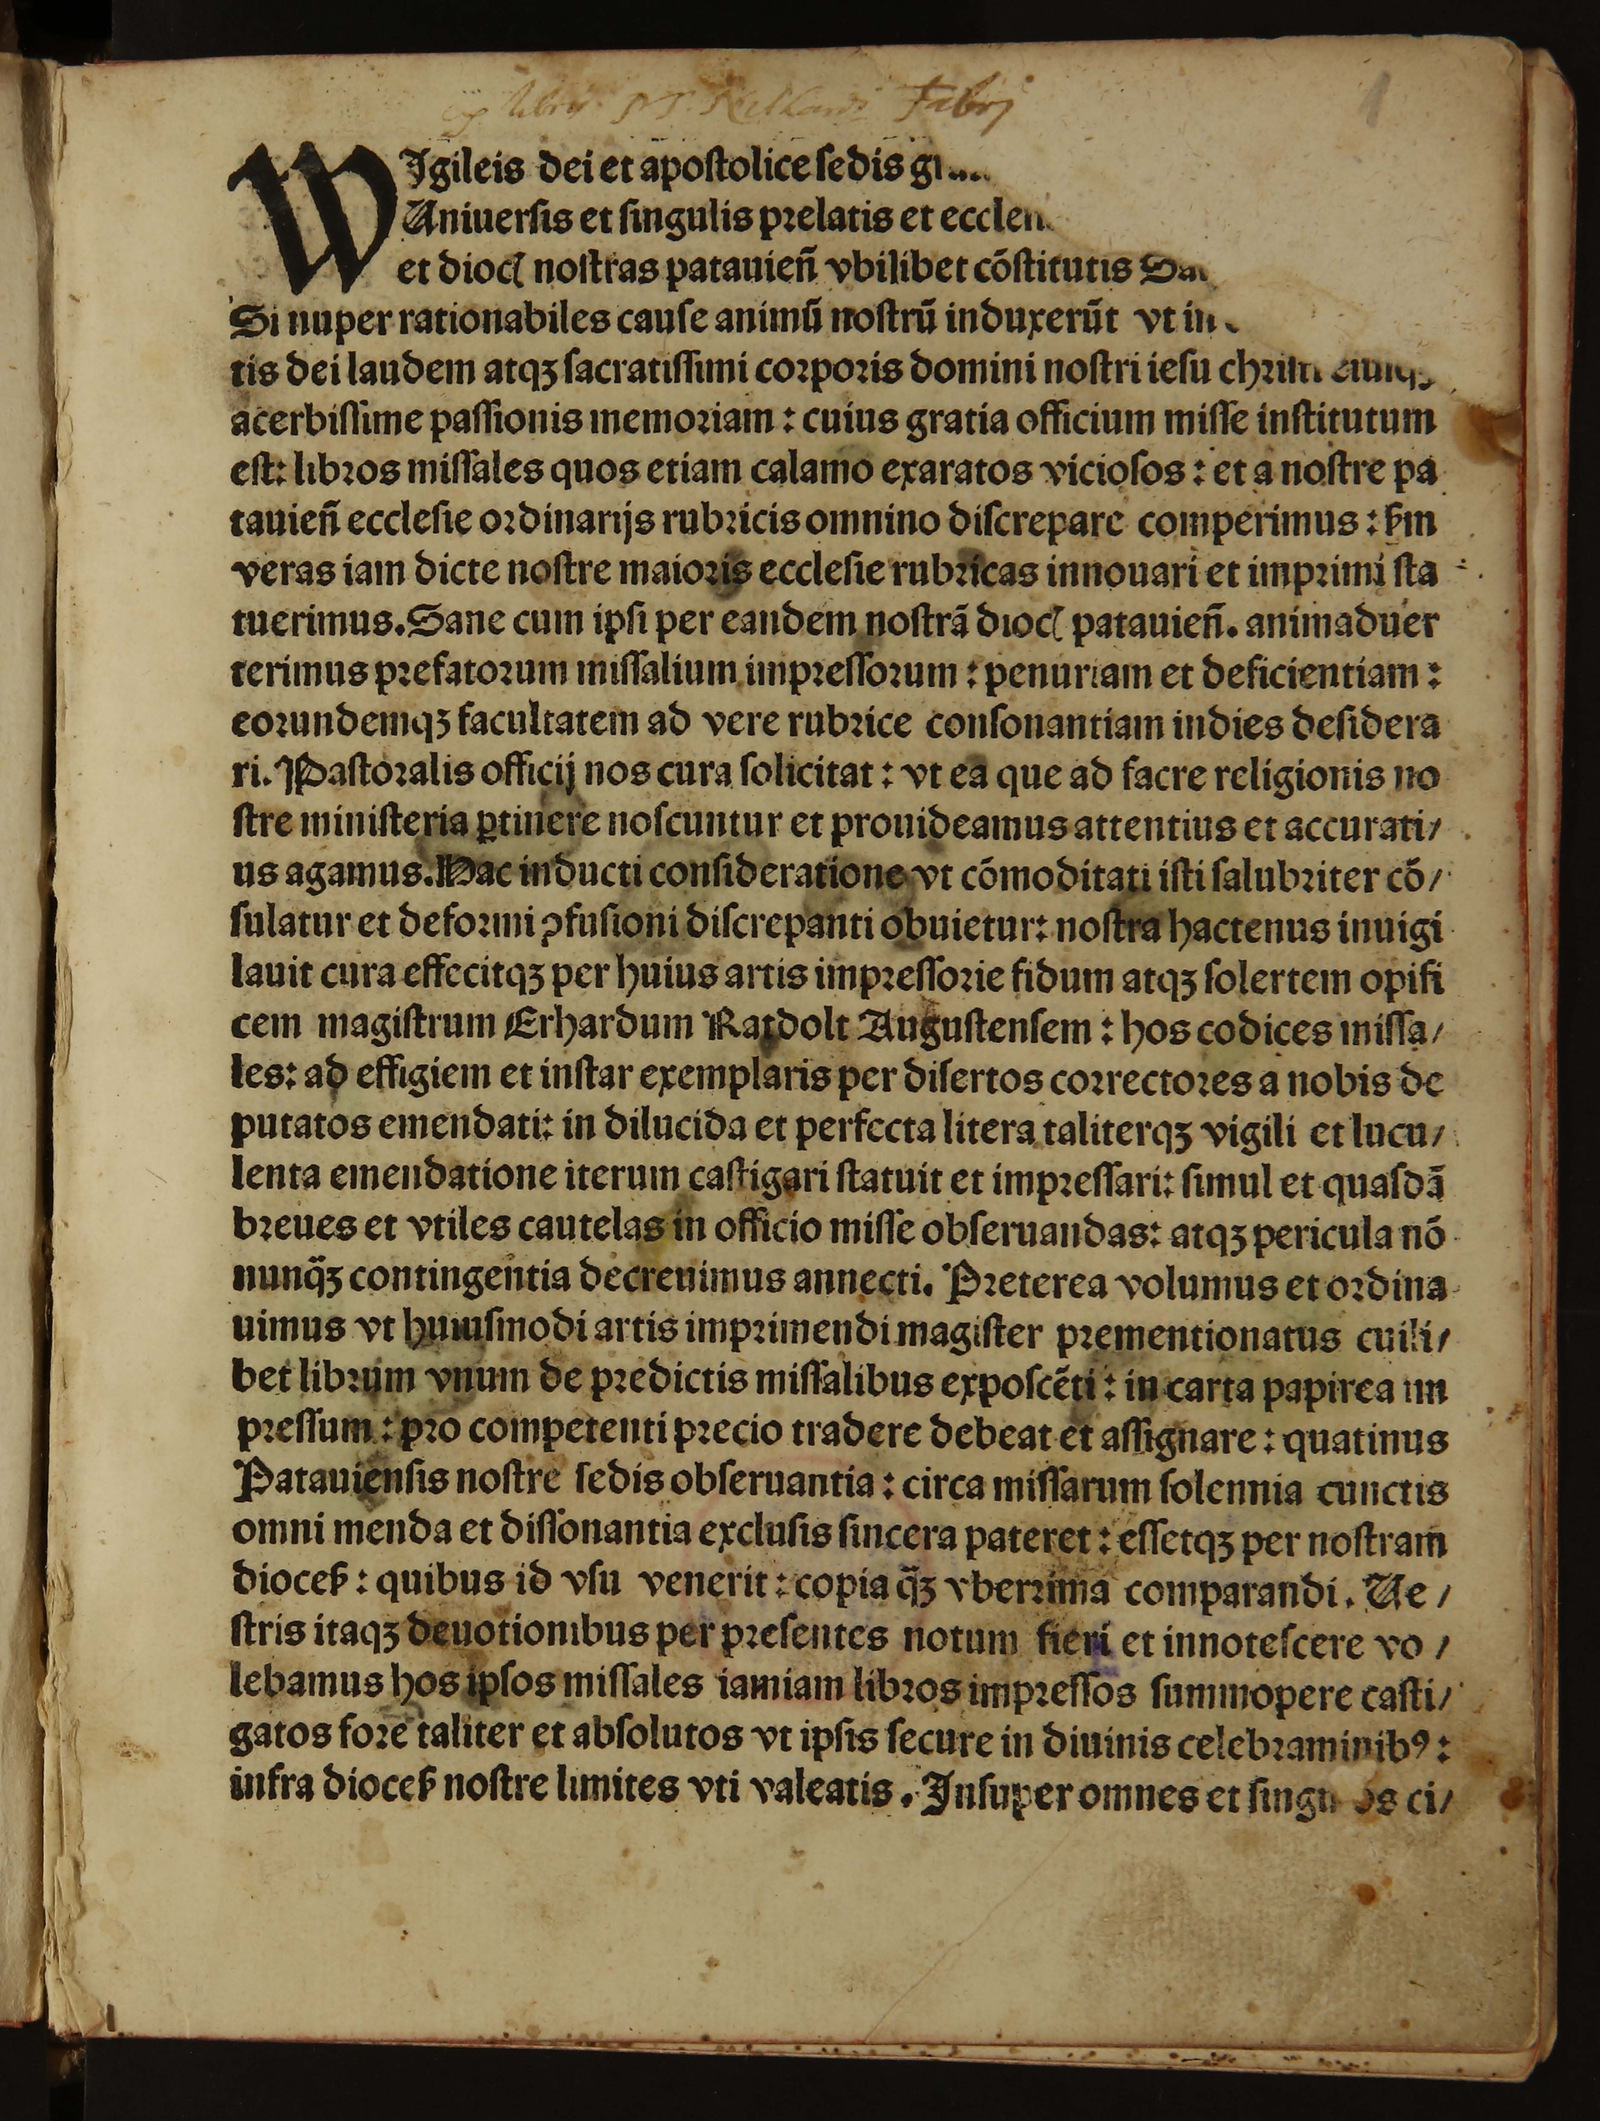 ex libris M. Fabrj
1
WIgileis dei et apostolice sedis
Uniuersis et singulis prelatis et
et dioc̃ nostras patauieñ vbilibet cõstitutis
Si nuper rationabiles cause animũ nostrũ induxerũt vt in
tis dei laudem atqꝫ sacratissimi corporis domini nostri iesu
acerbissime passionis memoriam : cuius gratia officium misse institutum
est: libros missales quos etiam calamo exaratos viciosos : et a nostre pa
tauieñ ecclesie ordinarijs rubricis omnino discrepare comperimus : ẜm
veras iam dicte nostre maioris ecclesie rubricas innouari et imprimi sta
tuerimus. Sane cum ipsi per eandem nostrã dioc̃ patauieñ. animaduer
terimus prefatorum missalium impressorum : penuriam et deficientiam :
eorundemqꝫ facultatem ad vere rubrice consonantiam indies desidera
ri. Pastoralis officij nos cura solicitat : vt ea que ad sacre religionis no
stre ministeria ꝑtinere noscuntur et prouideamus attentius et accurati/
us agamus. Hac inducti consideratione vt cõmoditati isti salubriter cõ/
sulatur et deformi ꝯfusioni discrepanti obuietur: nostra hactenus inuigi
lauit cura effecitqꝫ per huius artis impressorie fidum atqꝫ solertem opifi
cem magistrum Erhardum Ratdolt Augustensem : hos codices missa/
les: ad effigiem et instar exemplaris per disertos correctores a nobis de
putatos emendati: in dilucida et perfecta litera taliterqꝫ vigili et lucu/
lenta emendatione iterum castigari statuit et impressari: simul et quasdã
breues et vtiles cautelas in officio misse obseruandas: atqꝫ pericula nõ
nunq̃ꝫ contingentia decreuimus annecti. Preterea volumus et ordina
uimus vt huiusmodi artis imprimendi magister prementionatus cuili/
bet librum vnum de predictis missalibus exposcẽti : in carta papirea im
pressum : pro competenti precio tradere debeat et assignare : quatinus
Patauiensis nostre sedis obseruantia : circa missarum solennia cunctis
omni menda et dissonantia exclusis sincera pateret : essetqꝫ per nostram
dioceẜ : quibus id vsu venerit : copia q̃ꝫ vberrima comparandi. Ue /
stris itaqꝫ deuotionibus per presentes notum fieri et innotescere vo /
lebamus hos ipsos missales iamiam libros impressos summopere casti/
gatos fore taliter et absolutos vt ipsis secure in diuinis celebraminibꝰ :
infra dioceẜ nostre limites vti valeatis. Insuper omnes et singulos ci/